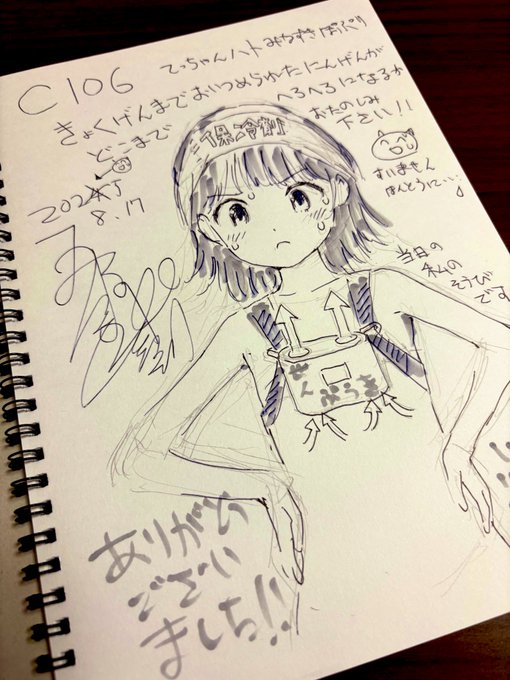 C106 てっちゃんハト みなずき ぽぷり
きょくげんまでおいつめられたにんげんが
どこまで
へろへろになるか
おたのしみ
下さい!!
保冷剤
すいません
ほんとうに…
8.17
当日の
私の
そうび
です
せんぷうき
ありがとう
ござい
ました!!